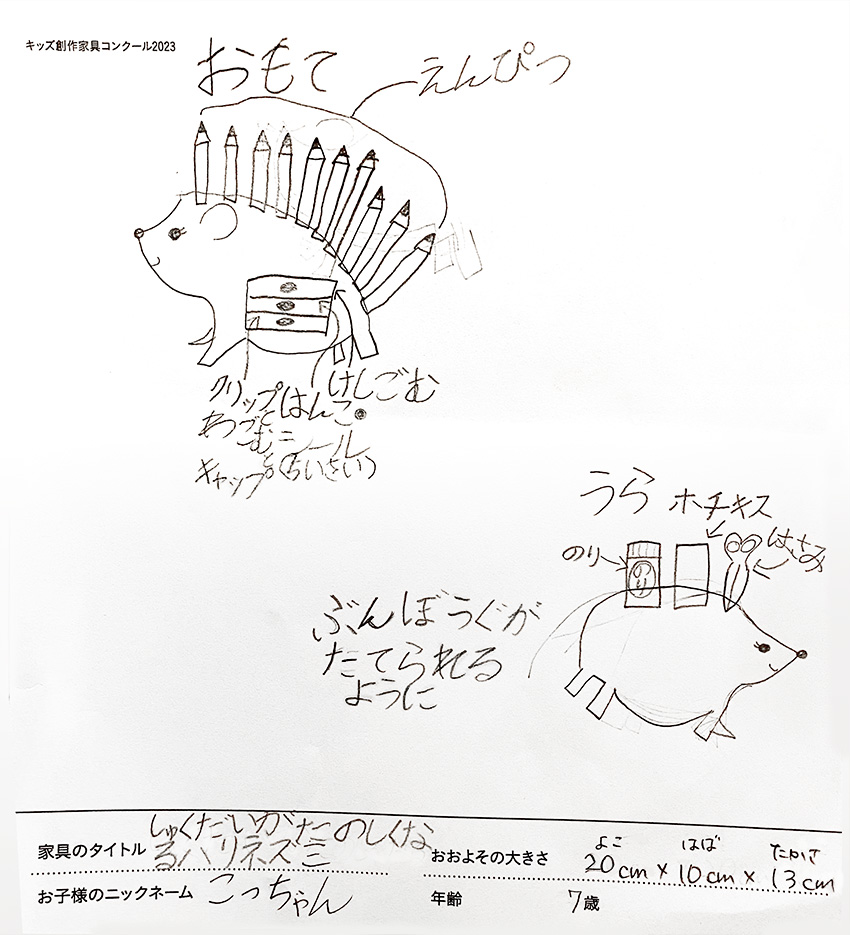 キッズ創作家具コンクール2023
おもて
えんぴつ
クリップ
はんこ
けしごむ
わごむ
シール
キャップ
(ちいさい)
うら
ホチキス
のり
のり
はさみ
ぶんぼうぐが
たてられる
ように
家具のタイトル しゅくだいがたのしくな
るハリネズミ
おおよその大きさ よこ はば たかさ
20cm×10cm×13cm
お子様のニックネーム こっちゃん
年齢 7歳